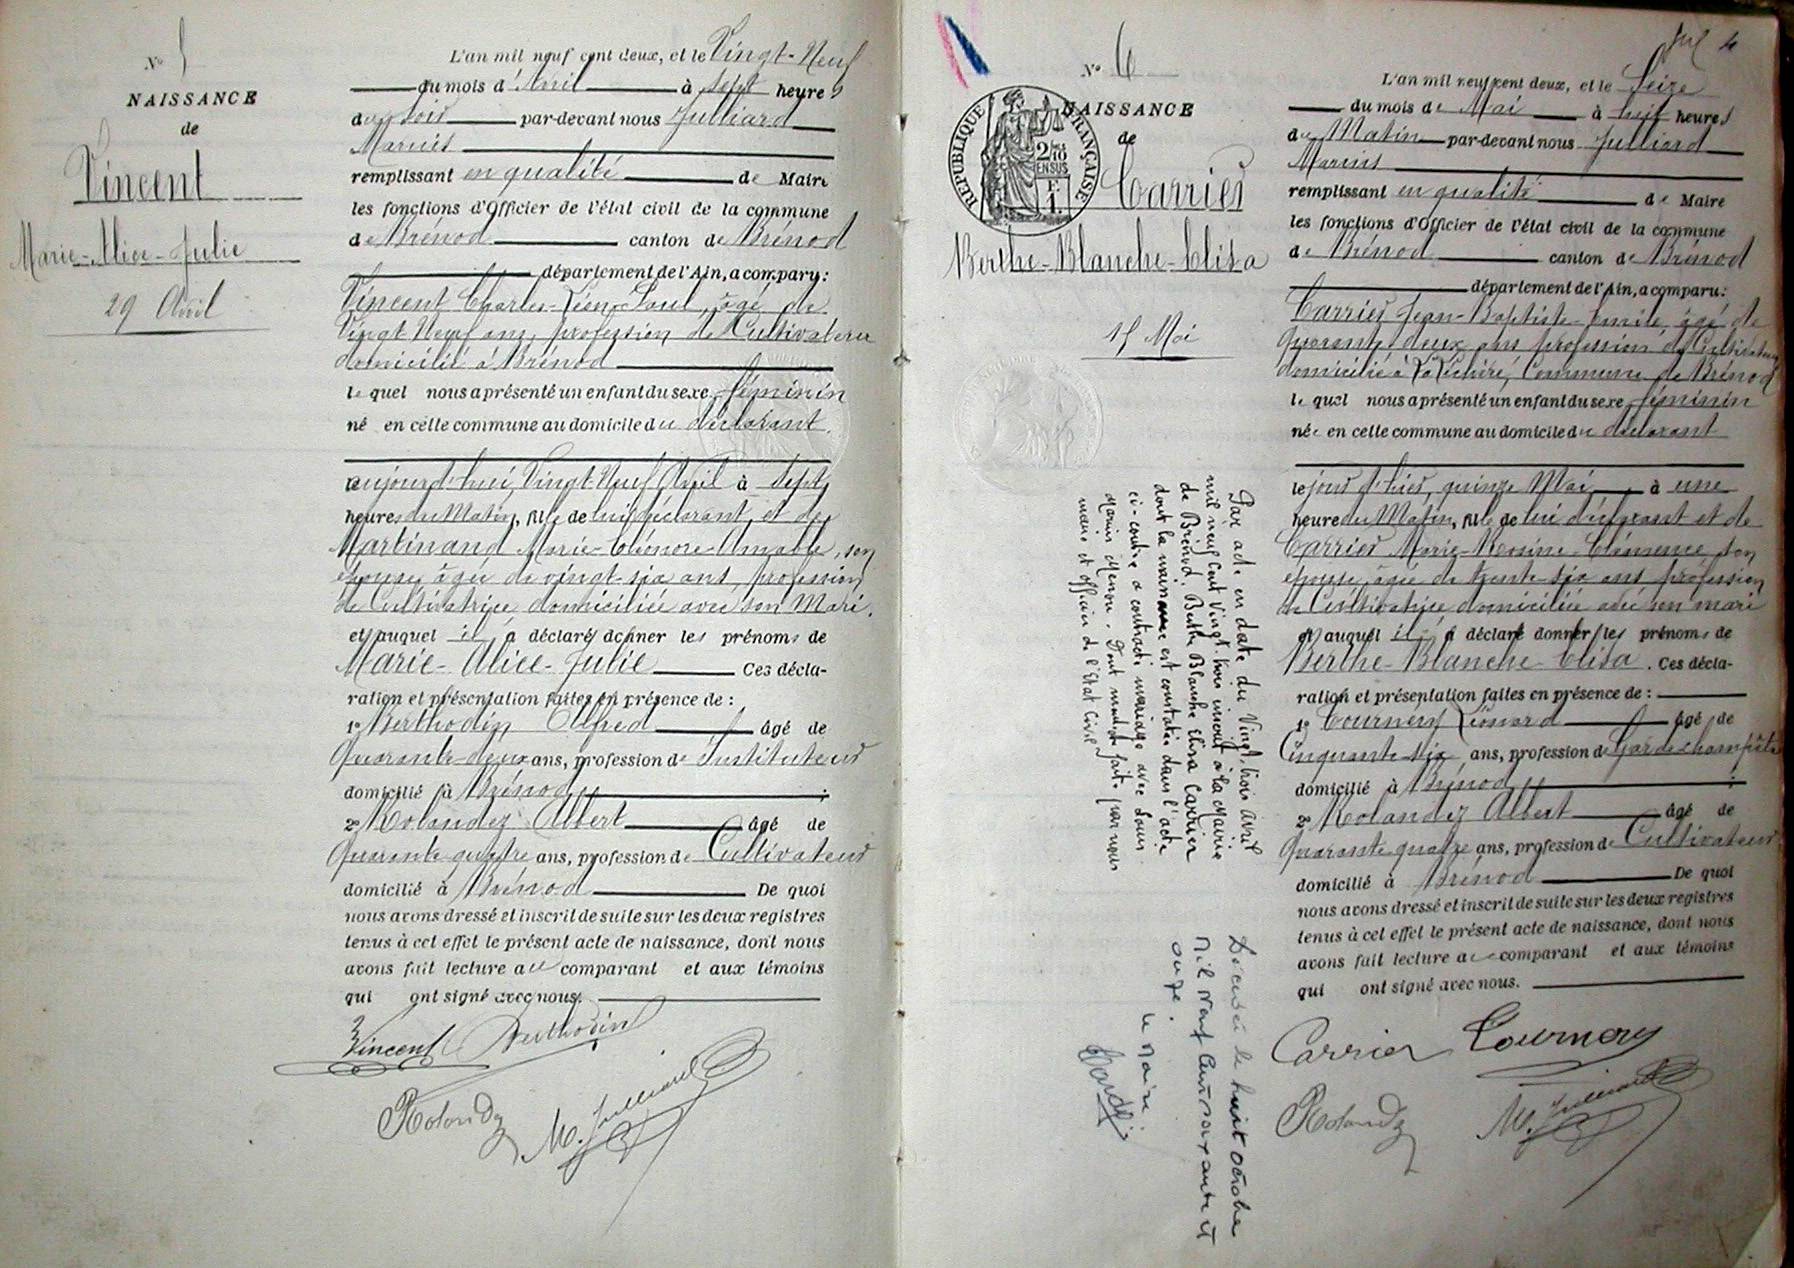 N° 5
NAISSANCE
de
Vincent
Marie-Alice-Julie
29 Avril
L'an mil neuf cent deux, et le Vingt-Neuf
du mois d'Avril à sept heures
du soir par-devant nous Julliard
Marius
remplissant en qualité de Maire
les fonctions d'Officier de l'état civil de la commune
de Brénod canton de Brénod
département de l'Ain, a comparu:
Vincent Charles-Léon-Paul, âgé de
Vingt Neuf ans, profession de Cultivateur
domicilié à Brénod
lequel nous a présenté un enfant du sexe féminin
né en cette commune au domicile du déclarant,
aujourd'hui, Vingt-Neuf Avril à sept
heures du Matin, fille de lui déclarant et de
Martinand Marie-Eléonore-Amable, son
épouse, âgée de vingt-six ans, profession
de Cultivatrice domiciliée avec son Mari.
et auquel il a déclaré donner les prénoms de
Marie-Alice-Julie Ces décla-
ration et présentation faites en présence de :
1° Berthodin Alfred âgé de
Quarante-deux ans, profession de Instituteur
domicilié à Brénod ;
2° Rolandez Albert âgé de
Quarante quatre ans, profession de Cultivateur
domicilié à Brénod De quoi
nous avons dressé et inscrit de suite sur les deux registres
tenus à cet effet le présent acte de naissance, dont nous
avons fait lecture au comparant et aux témoins
qui ont signé avec nous.
Vincent Berthodin
Rolandez M. Julliard
Jul 4
N° 6
NAISSANCE
de
RÉPUBLIQUE FRANÇAISE
2/10 EN SUS
F. 1.
Carrier
Berthe-Blanche-Elisa
15 Mai
L'an mil neuf cent deux, et le Seize
du mois de Mai à huit heures
du Matin par-devant nous Julliard
Marius
remplissant en qualité de Maire
les fonctions d'Officier de l'état civil de la commune
de Brénod canton de Brénod
département de l'Ain, a comparu:
Carrier Jean-Baptiste-Emile, âgé de
Quarante deux ans profession de Cultivateur
domicilié à La Léchère, Commune de Brénod
lequel nous a présenté un enfant du sexe féminin
née en cette commune au domicile du déclarant
le jour d'hier, quinze Mai à une
heure du Matin, fille de lui déclarant et de
Carrier Marie-Rosine-Clémence son
épouse, âgée de trente-six ans profession
de Cultivatrice domiciliée avec son mari
et auquel il a déclaré donner les prénoms de
Berthe-Blanche-Elisa. Ces décla-
ration et présentation faites en présence de :
1° Tournery Léonard âgé de
Cinquante-six ans, profession de Garde-champêtre
domicilié à Brénod ;
2° Rolandez Albert âgé de
Quarante quatre ans, profession de Cultivateur
domicilié à Brénod De quoi
nous avons dressé et inscrit de suite sur les deux registres
tenus à cet effet le présent acte de naissance, dont nous
avons fait lecture au comparant et aux témoins
qui ont signé avec nous.
Carrier Tournery
Rolandez M. Julliard
Par acte en date du Vingt-trois avril
mil neuf cent vingt-trois inscrit à la Mairie
de Brénod, Berthe Blanche Elisa Carrier
dont la naissance est constatée dans l'acte
ci-contre a contracté mariage avec Louis
Marius . Dont mention faite par nous
maire et officier de l'Etat Civil
Décédée le huit octobre
mil neuf cent soixante et
onze.
Le Maire :